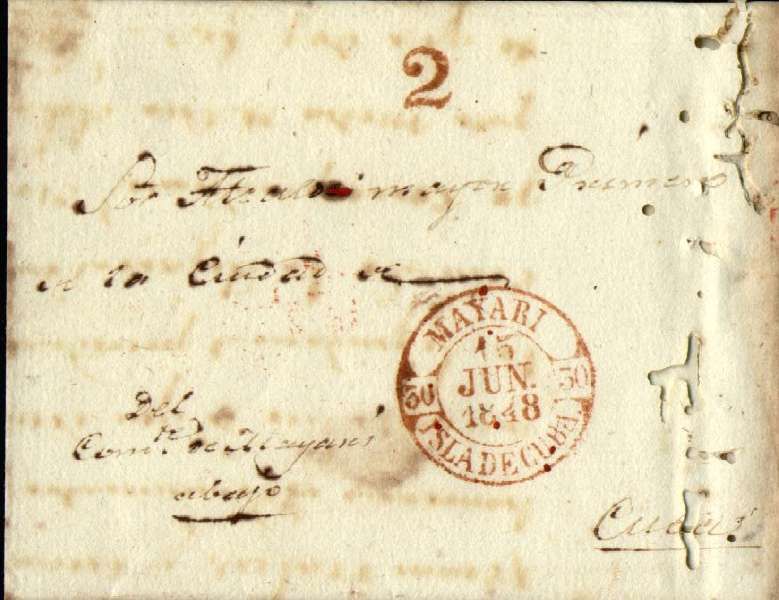 2
Sor Alcalde mayor Primero
en la Ciudad de
MAYARI
15
JUN.
1848
30
30
ISLA DE CUBA
Del
Comte. de Mayari
abajo
Cuba